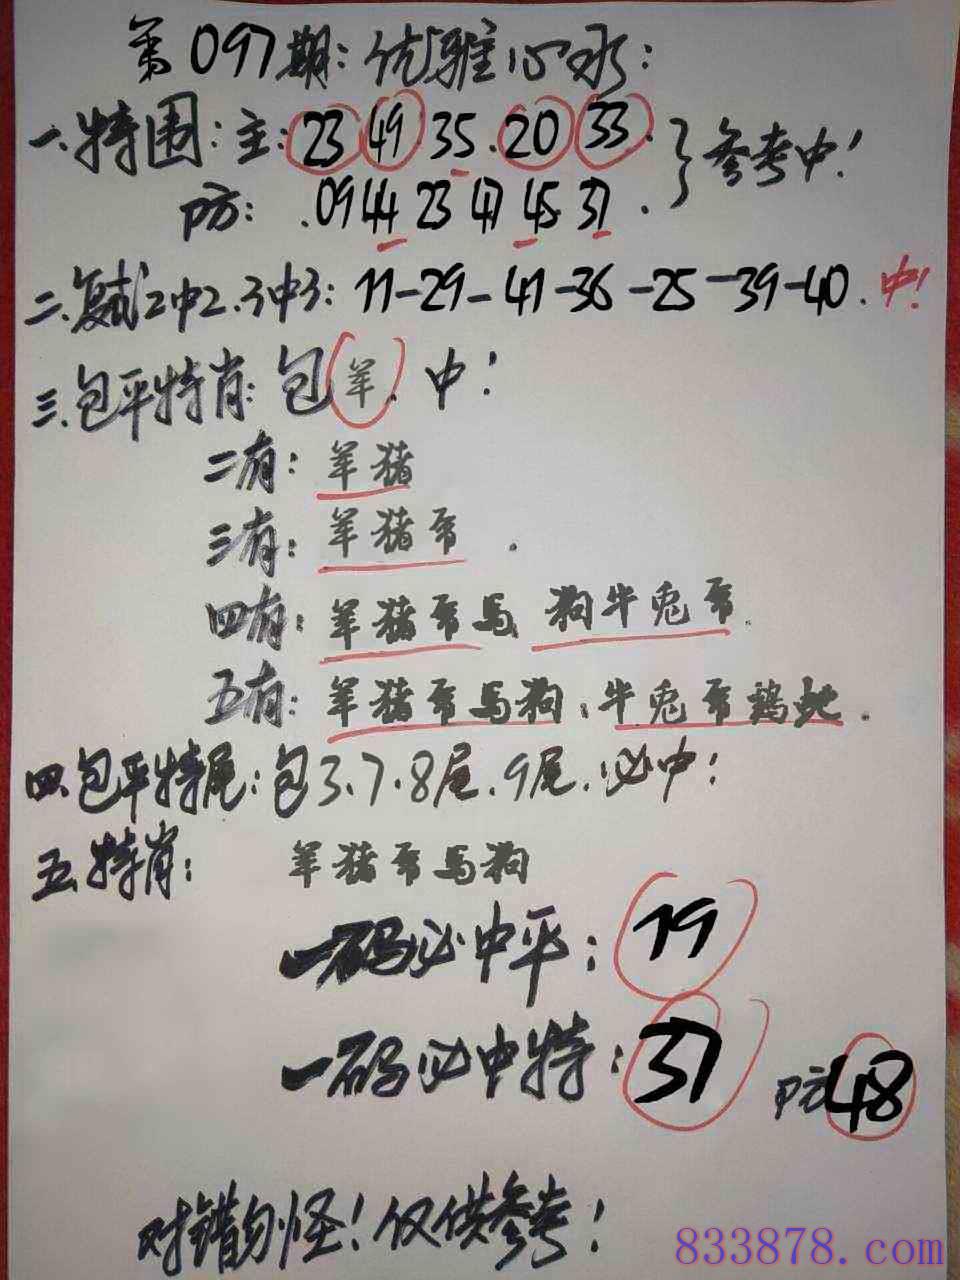 第097期:优雅心水:
一.特围:主:23 49 35.20 33.
防:.09 44 23 47 45 37.
}参考中!
二.复式2中2.3中3:11-29-41-36-25-39-40.中!
三.包平特肖:包羊.中!
二有:羊猪
三有:羊猪.
四有:羊猪马 狗牛兔.
五有:羊猪马狗;牛兔鸡蛇.
四.包平特尾:包3.7.8尾.9尾.必中!
五.特肖:羊猪马狗
一码必中平:19
一码必中特:37 防48
对错勿怪!仅供参考!
833878.com